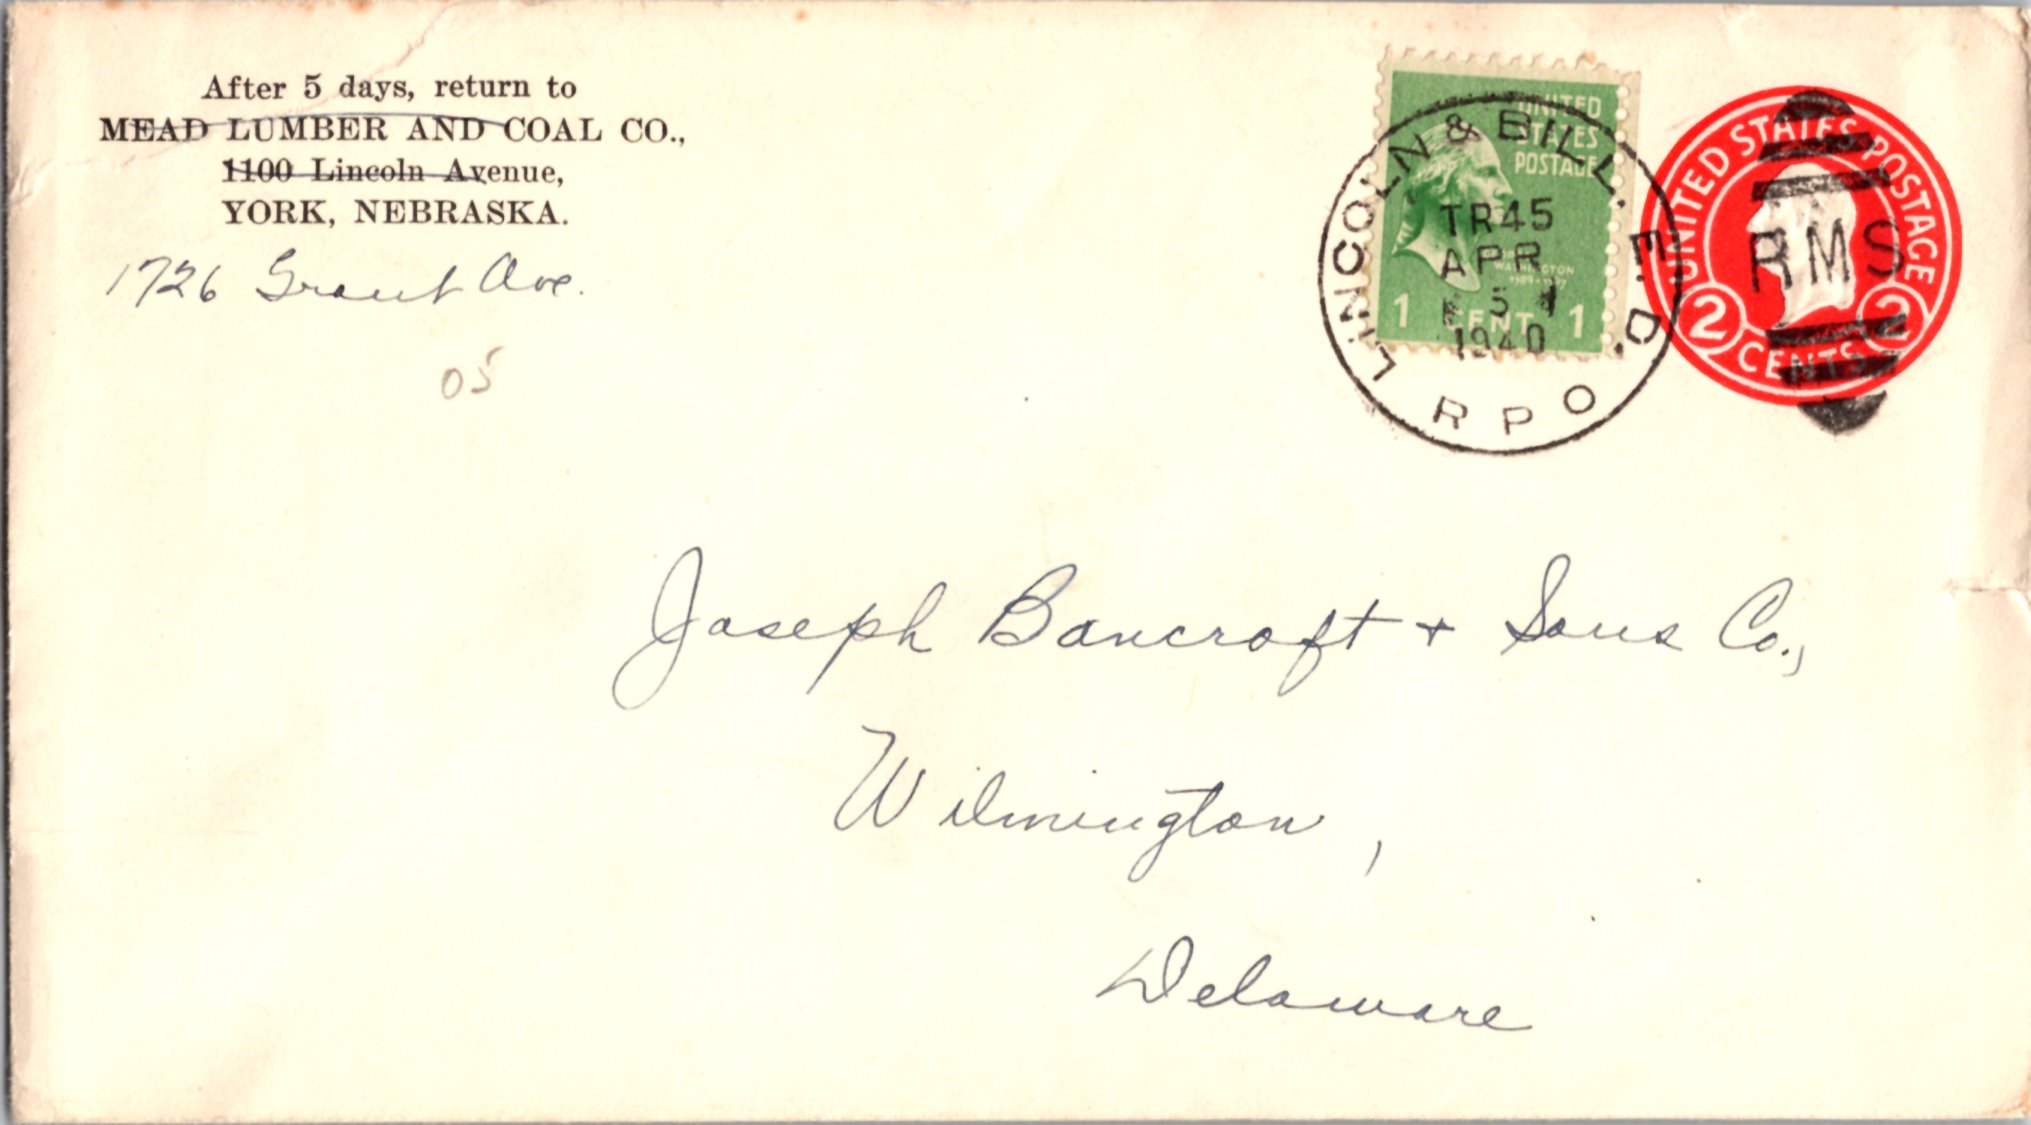 After 5 days, return to
MEAD LUMBER AND COAL CO.,
1100 Lincoln Avenue,
YORK, NEBRASKA.
1726 Grant Ave.
05
UNITED
STATES
POSTAGE
WASHINGTON
1789-1797
1 CENT 1
LINCOLN & BILL. E.D.
TR45
APR
5
1940
R P O
UNITED STATES POSTAGE
RMS
2 CENTS 2
Joseph Bancroft + Sons Co.,
Wilmington,
Delaware